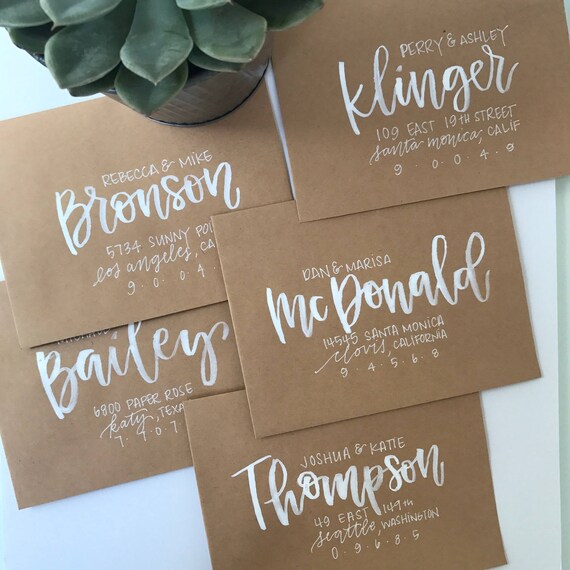 PERRY & ASHLEY
Klinger
109 EAST 19TH STREET
santa monica, CALIF
9 0 0 4 9
REBECCA & MIKE
Bronson
5734 SUNNY
los angeles, CA
9 . 0 . 0 . 4 .
DAN & MARISA
McDonald
14545 SANTA MONICA
clovis, CALIFORNIA
9 4 5 6 8
Bailey
6800 PAPER ROSE
katy, TEXA
7 . 9 . 0 . 7
JOSHUA & KATIE
Thompson
49 EAST 149TH
seattle, WASHINGTON
0 . 9 . 6 . 8 . 5